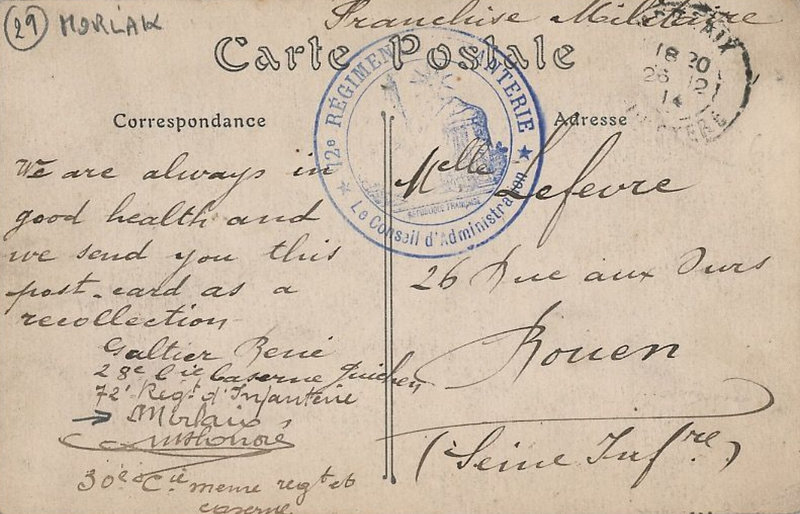 29 MORLAIX
Franchise Militaire
Carte Postale
MORLAIX
18 20
26 12
14
FINISTERE
72e RÉGIMENT D'INFANTERIE
RÉPUBLIQUE FRANÇAISE
Le Conseil d'Administration
Correspondance
Adresse
We are always in
good health and
we send you this
post-card as a
recollection
Galtier René
28e Cie Caserne Guichen
72e Regt d'Infanterie
Morlaix
30e Cie meme regt et
caserne
Melle Lefevre
26 Rue aux Ours
Rouen
(Seine Infre)